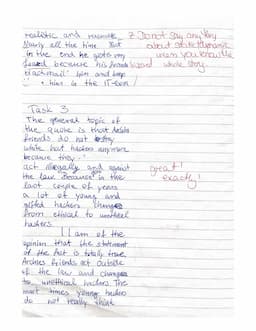 realistic and
nearly all the time. But
in the end he gets my
because his friends
blackmail him and keep
him in the
? Do not say anything
about static/dynamic
when you know the
whole story.
Task 3
The general topic of
the quote is that
friends do not stay
white hat hackers anymore
because they
act illegally and against
the law. Because in the
last couple of years
a lot of young and
gifted hackers changed
from ethical to unethical
hackers.
great!
exactly!
I am of the
opinion that the statement
of the text is totally true.
Archies friends act outside
of the law and changes
to unethical hackers. The
most times young hackers
do not really think